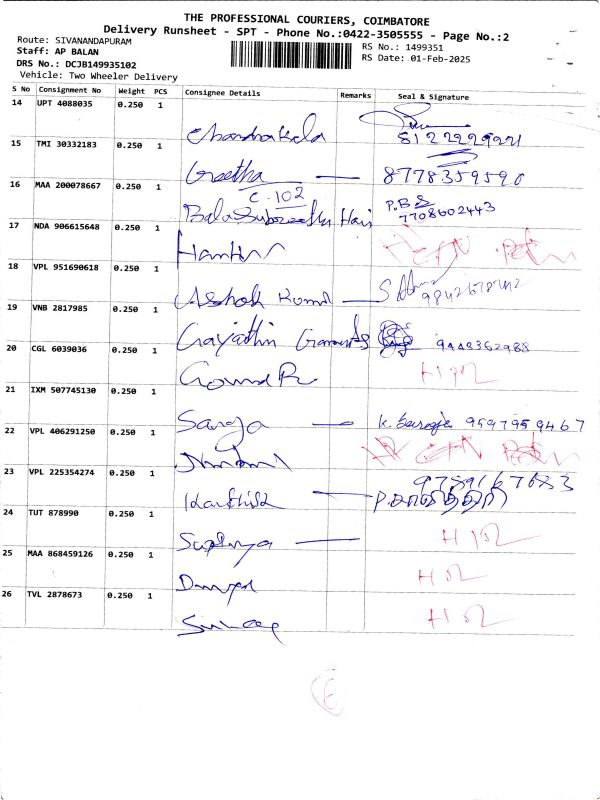 THE PROFESSIONAL COURIERS, COIMBATORE
Delivery Runsheet - SPT - Phone No.:0422-3505555 - Page No.:2
Route: SIVANANDAPURAM
RS No.: 1499351
Staff: AP BALAN
RS Date: 01-Feb-2025
DRS No.: DCJB149935102
Vehicle: Two Wheeler Delivery
S No Consignment No Weight PCS Consignee Details Remarks Seal & Signature
14 UPT 4088035 0.250 1
Chandrakala 8122229221
15 TMI 30332183 0.250 1
Geetha — 8778359590
16 MAA 200078667 0.250 1
C.102
P.B.S
7708602443
17 NDA 906615648 0.250 1
18 VPL 951690618 0.250 1
Ashok Kumar —
19 VNB 2817985 0.250 1
Gayathiri Garments 9448362988
20 CGL 6039036 0.250 1
21 IXM 507745130 0.250 1
Saroja — K. Saroja 9597959467
22 VPL 406291250 0.250 1
23 VPL 225354274 0.250 1
9789167683
Karthik —
24 TUT 878990 0.250 1
Supriya —
25 MAA 868459126 0.250 1
26 TVL 2878673 0.250 1
6